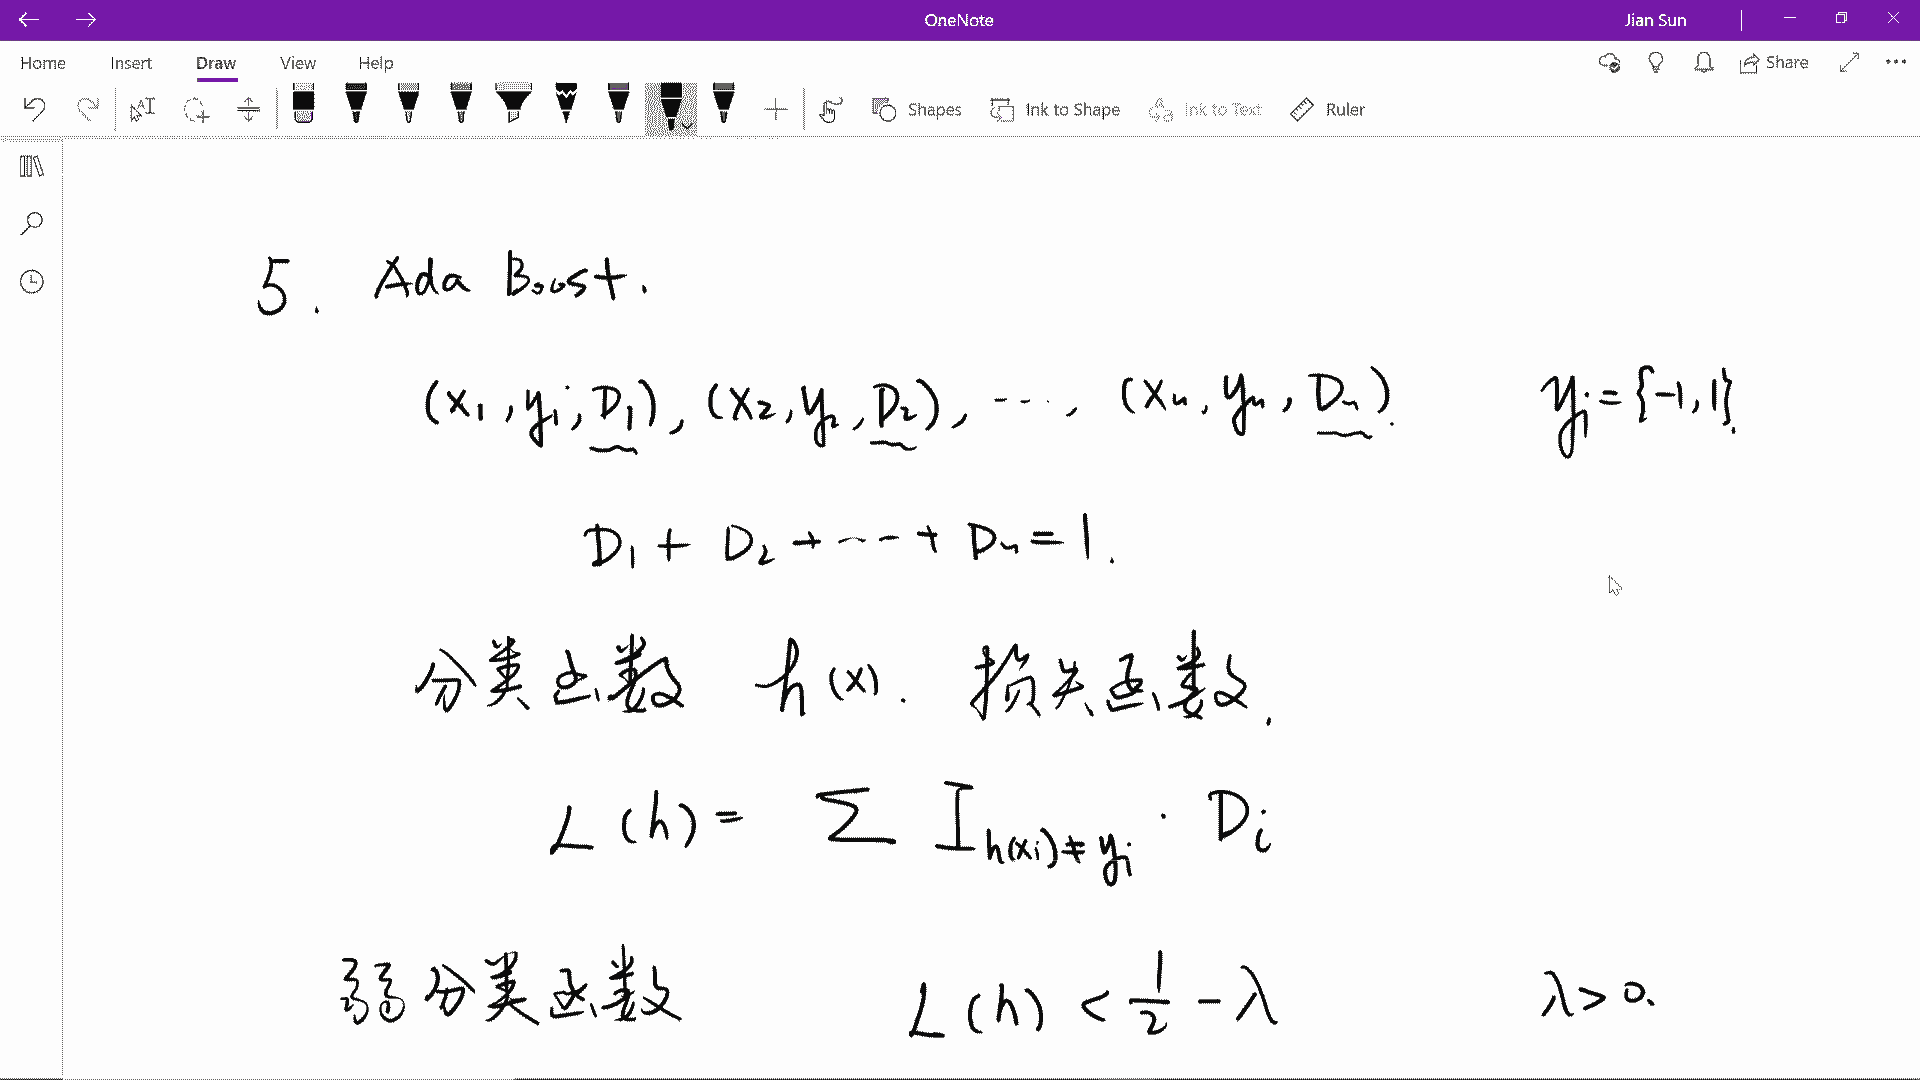 OneNote
Jian Sun
Home Insert Draw View Help
Share
Shapes Ink to Shape Ink to Text Ruler
5. Ada Boost.
(x₁, y₁, D₁), (x₂, y₂, D₂), ..., (xₙ, yₙ, Dₙ). yᵢ = {-1, 1}.
D₁ + D₂ + ... + Dₙ = 1.
分类函数 h(x). 损失函数.
L(h) = ∑ I_{h(xᵢ)≠yᵢ} · Dᵢ
弱分类函数 L(h) < 1/2 - λ λ > 0.